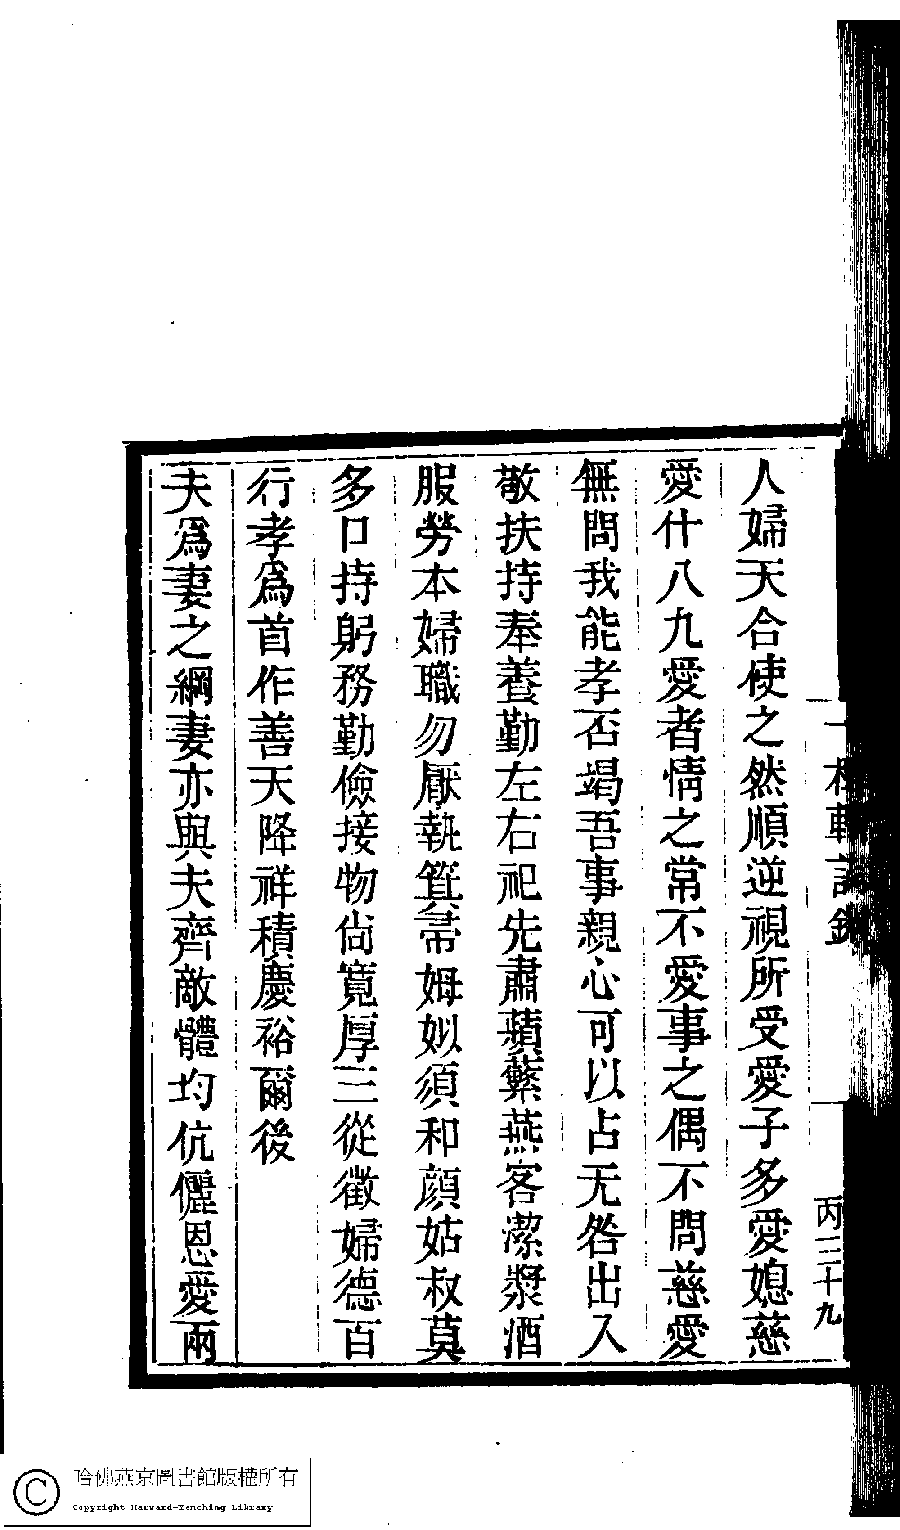 人婦天合使之然順逆視所受愛子多愛媳慈
愛什八九愛者情之常不愛事之偶不問慈愛
無問我能孝否竭吾事親心可以占无咎出入
敬扶持奉養勤左右祀先肅蘋蘩燕客潔漿酒
服勞本婦職勿厭執箕帚姆姒須和顏姑叔莫
多口持躬務勤儉接物尚寬厚三從徵婦德百
行孝爲首作善天降祥積慶裕爾後
夫爲妻之綱妻亦與夫齊敵體均伉儷恩愛兩
丙三十九
哈佛燕京圖書館版權所有
Copyright Harvard-Yenching Library